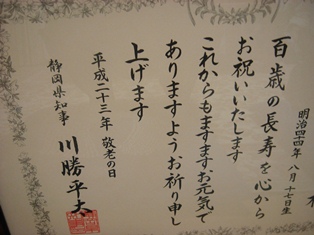 明治四十四年八月十七日生
百歳の長寿を心から
お祝いいたします
これからもますますお元気で
ありますようお祈り申し
上げます
平成二十三年 敬老の日
静岡県知事 川勝平太